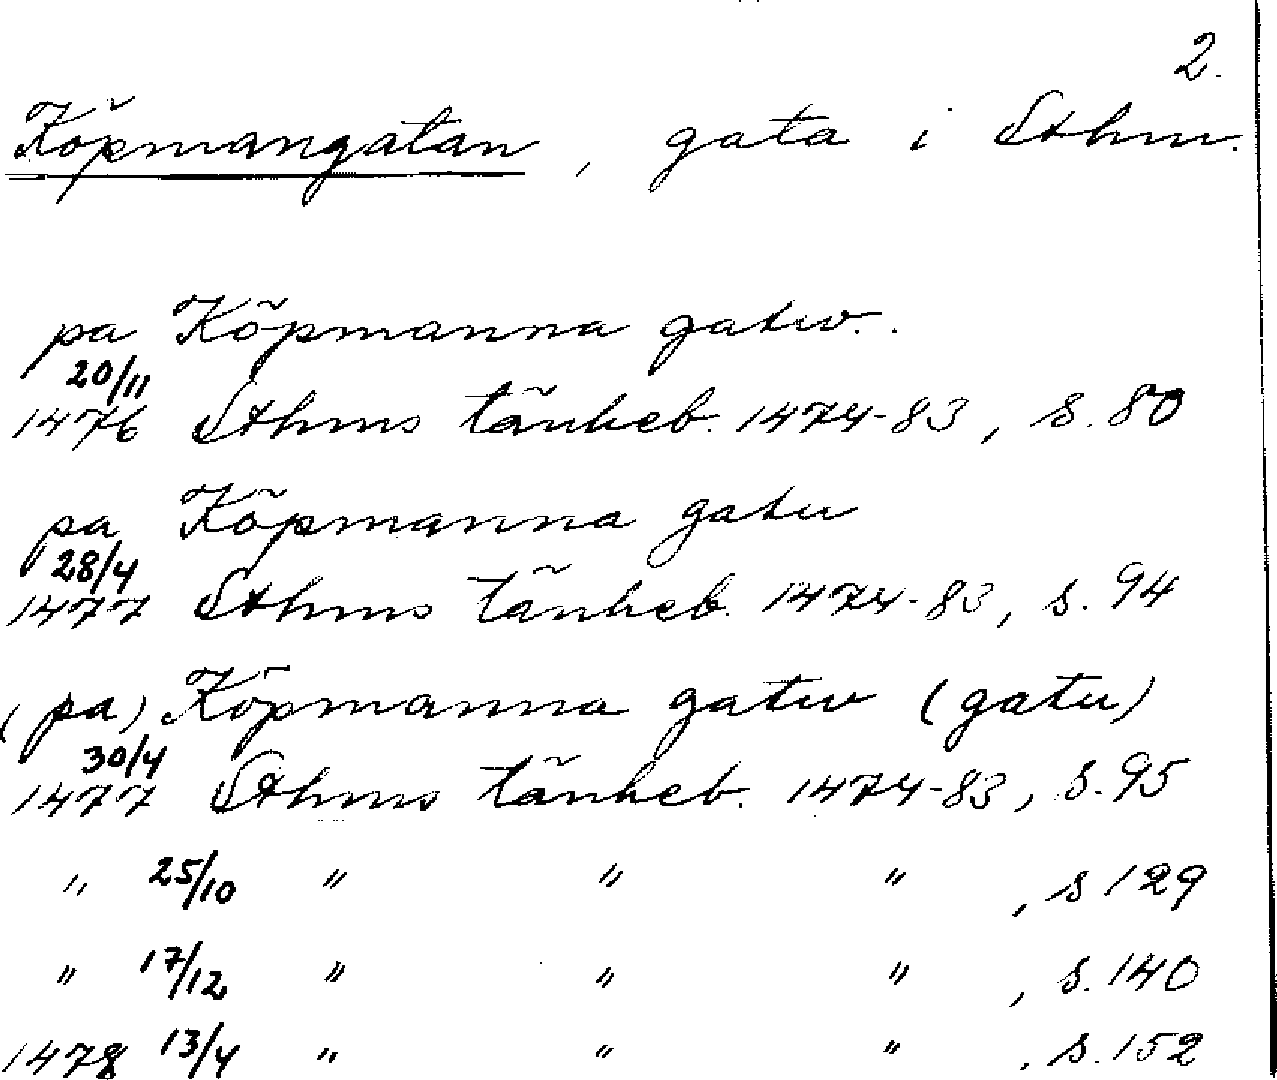 2.
Köpmangatan, gata i Sthm.
pa Köpmanna gatw..
20/11
1476 Sthms tänkeb. 1474-83, s. 80
pa Köpmanna gatu
28/4
1477 Sthms tänkeb. 1474-83, s. 94
(pa) Köpmanna gatw (gatu)
30/4
1477 Sthms tänkeb. 1474-83, s. 95
" 25/10 " " " , s 129
" 17/12 " " " , s. 140
1478 13/4 " " " , s. 152